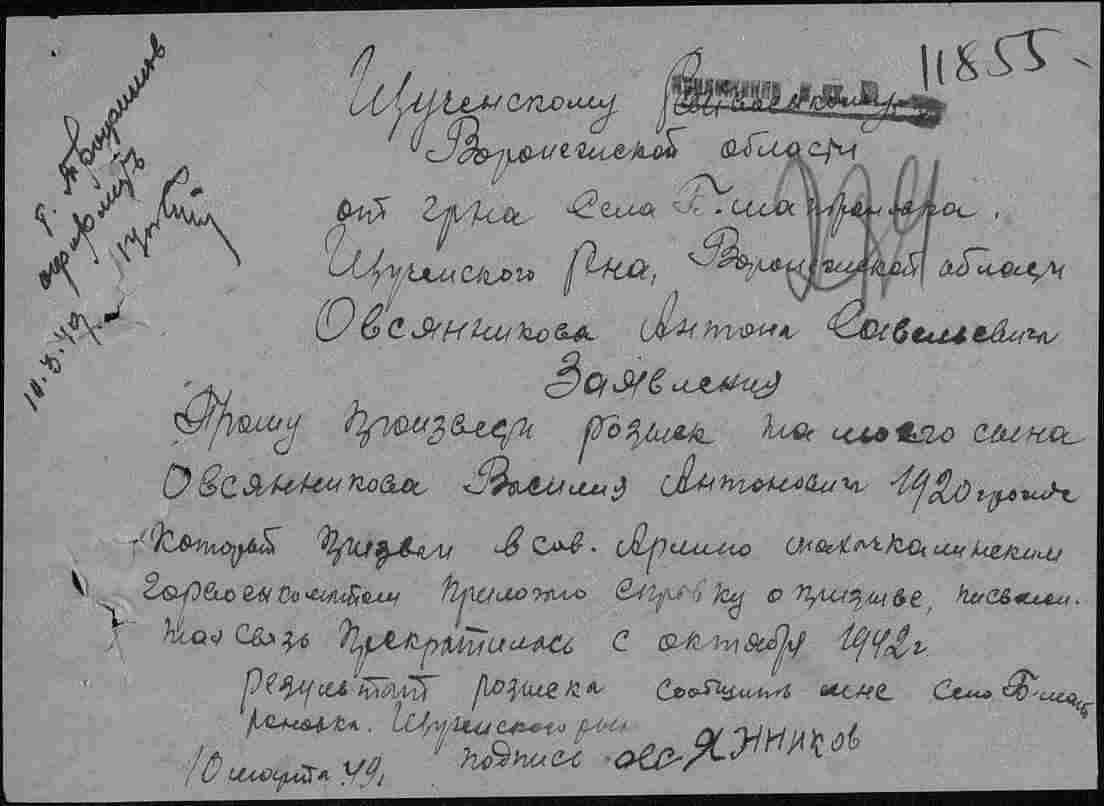 11855-
Щученскому Райвоенкому
Воронежской области
от гр-на села Б.
Щученского р-на, Воронежской области
Овсянникова Антона Савельевича
Заявления
Прошу произвести розыск на моего сына
Овсянникова Василия Антоновича 1920
который призван в сов. Армию махачкалинским
горвоенкоматом приложаю справку о призыве, письмен-
ная связь прекратилась с октября 1942 г
результат розыска сообщить мне село Б-
Щученского р-на
10 марта 49. подпись овсЯнников
10.3.49